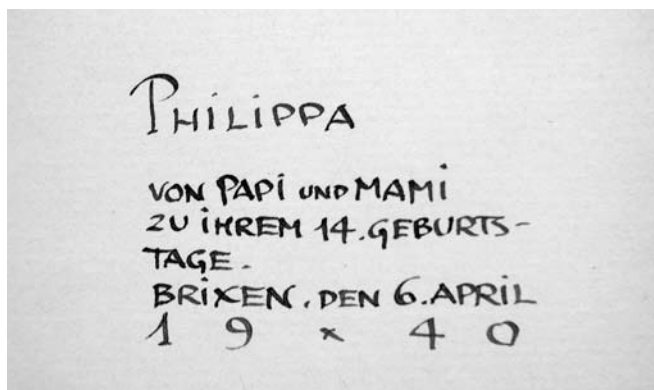 PHILIPPA
VON PAPI UND MAMI
ZU IHREM 14. GEBURTS-
TAGE.
BRIXEN, DEN 6. APRIL
19 × 40